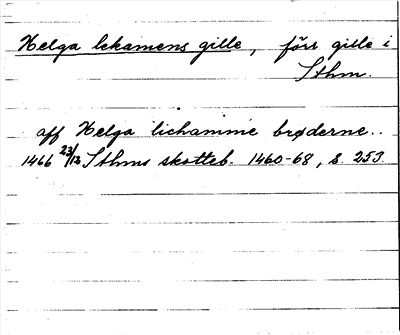 Helga lekamens gille, förr gille i
Sthm.
aff Helga lichamme brøderne..
1466 23/12 Sthms skotteb. 1460-68, s. 253.